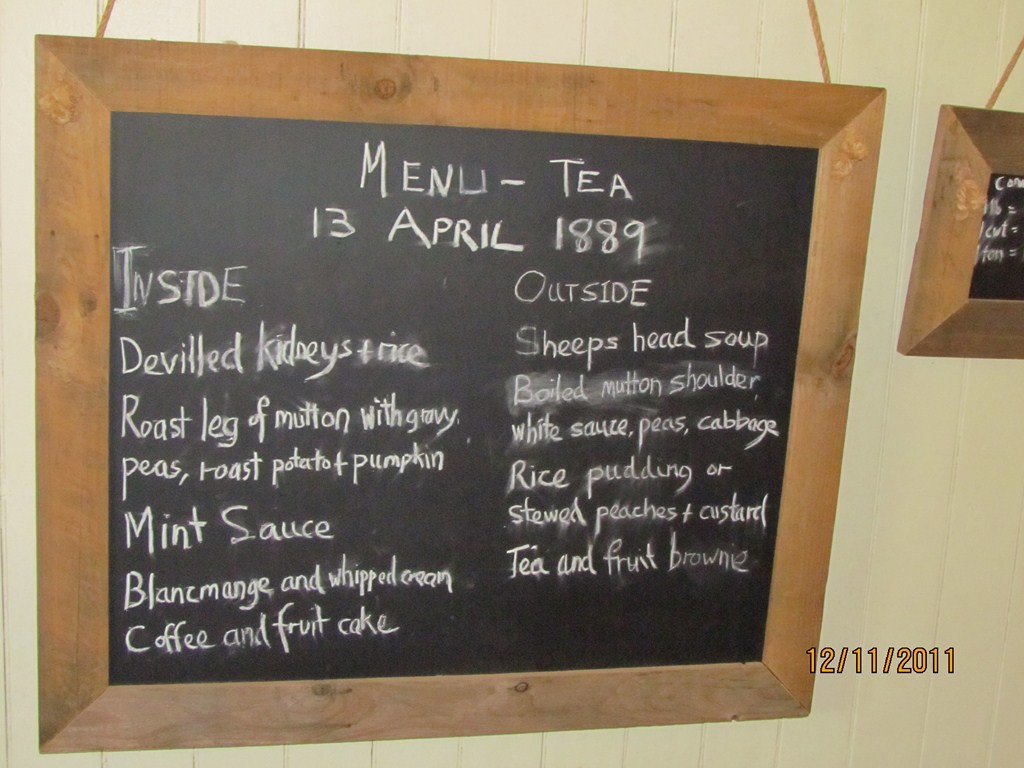 MENU - TEA
13 APRIL 1889
INSIDE
Devilled kidneys + rice
Roast leg of mutton with gravy,
peas, roast potato + pumpkin
Mint Sauce
Blancmange and whipped cream
Coffee and fruit cake
OUTSIDE
Sheeps head soup
Boiled mutton shoulder,
white sauce, peas, cabbage
Rice pudding or
stewed peaches + custard
Tea and fruit brownie
12/11/2011